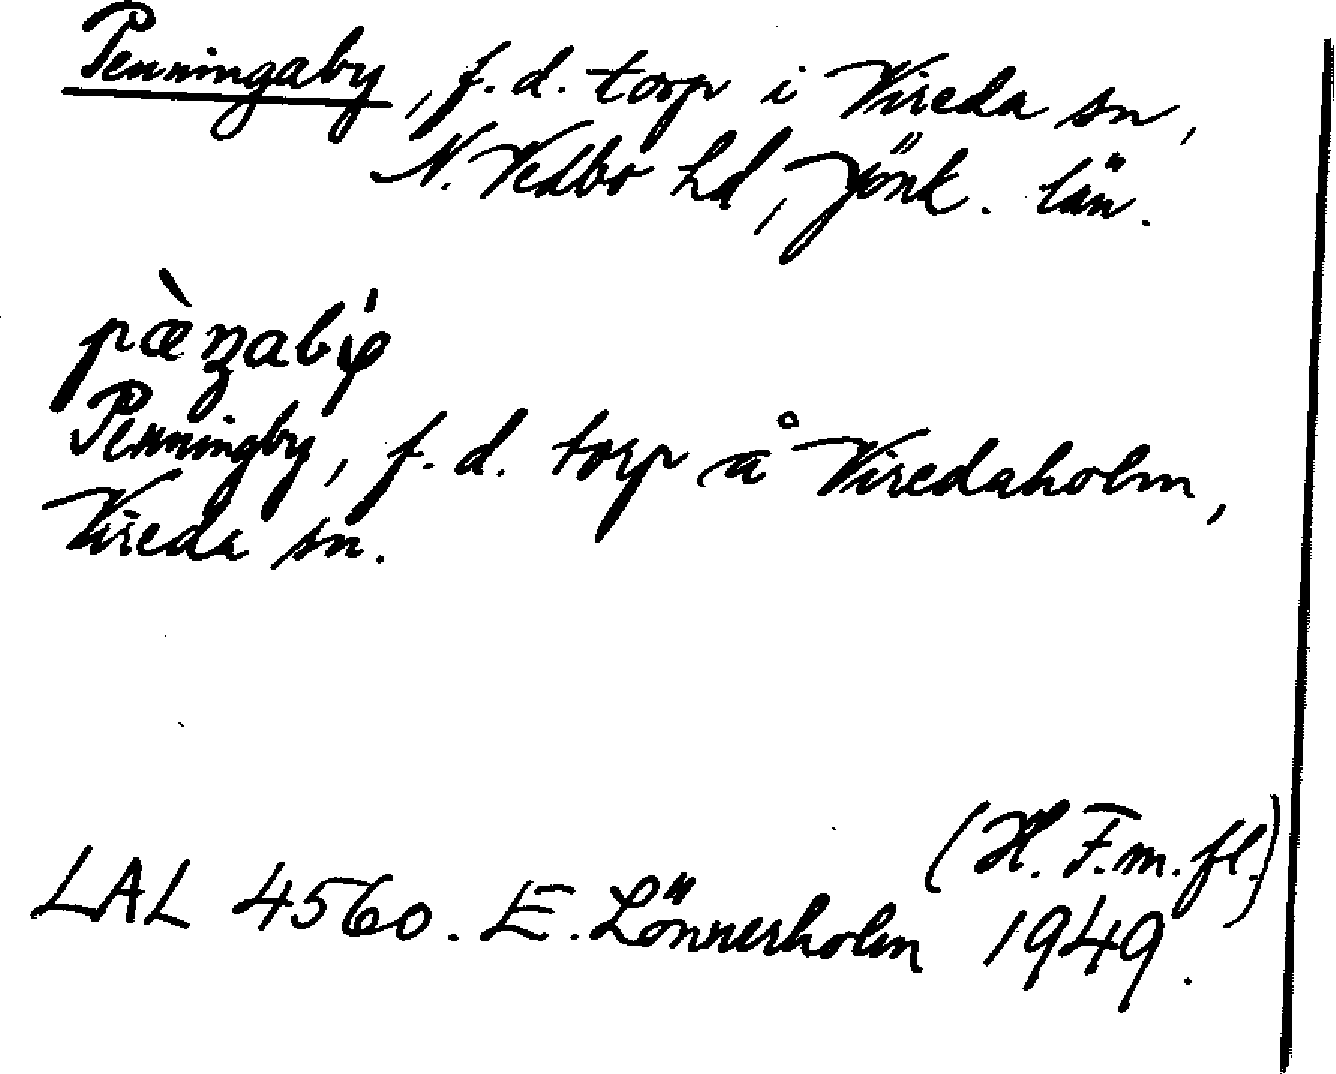 Penningaby, f. d. torp i Vireda sn,
N. Vedbo hd, Jönk. län.
Penningby, f. d. torp å Viredaholm,
Vireda sn.
(H. F. m. fl.)
LAL 4560. E. Lönnerholm 1949.